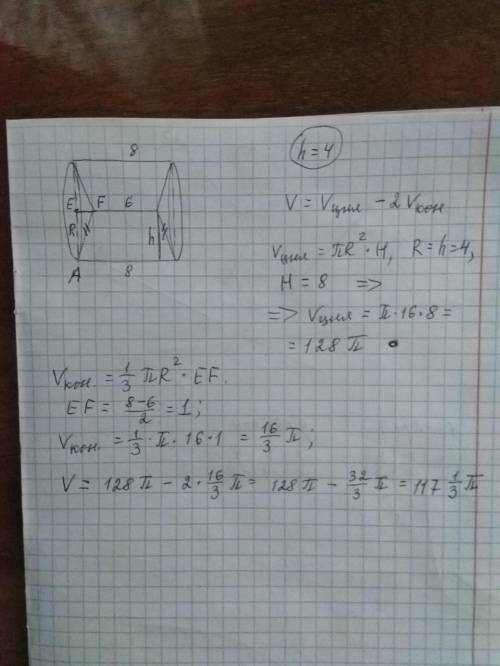 8
h=4
E F 6
R h 4
A 8
V = Vцил - 2Vкон
Vцил = πR²·H, R=h=4,
H = 8 =>
=> Vцил = π·16·8 =
= 128π
Vкон. = 1/3 πR²·EF.
EF = 8-6/2 = 1;
Vкон. = 1/3·π·16·1 = 16/3 π;
V = 128π - 2·16/3 π = 128π - 32/3 π = 117 1/3 π